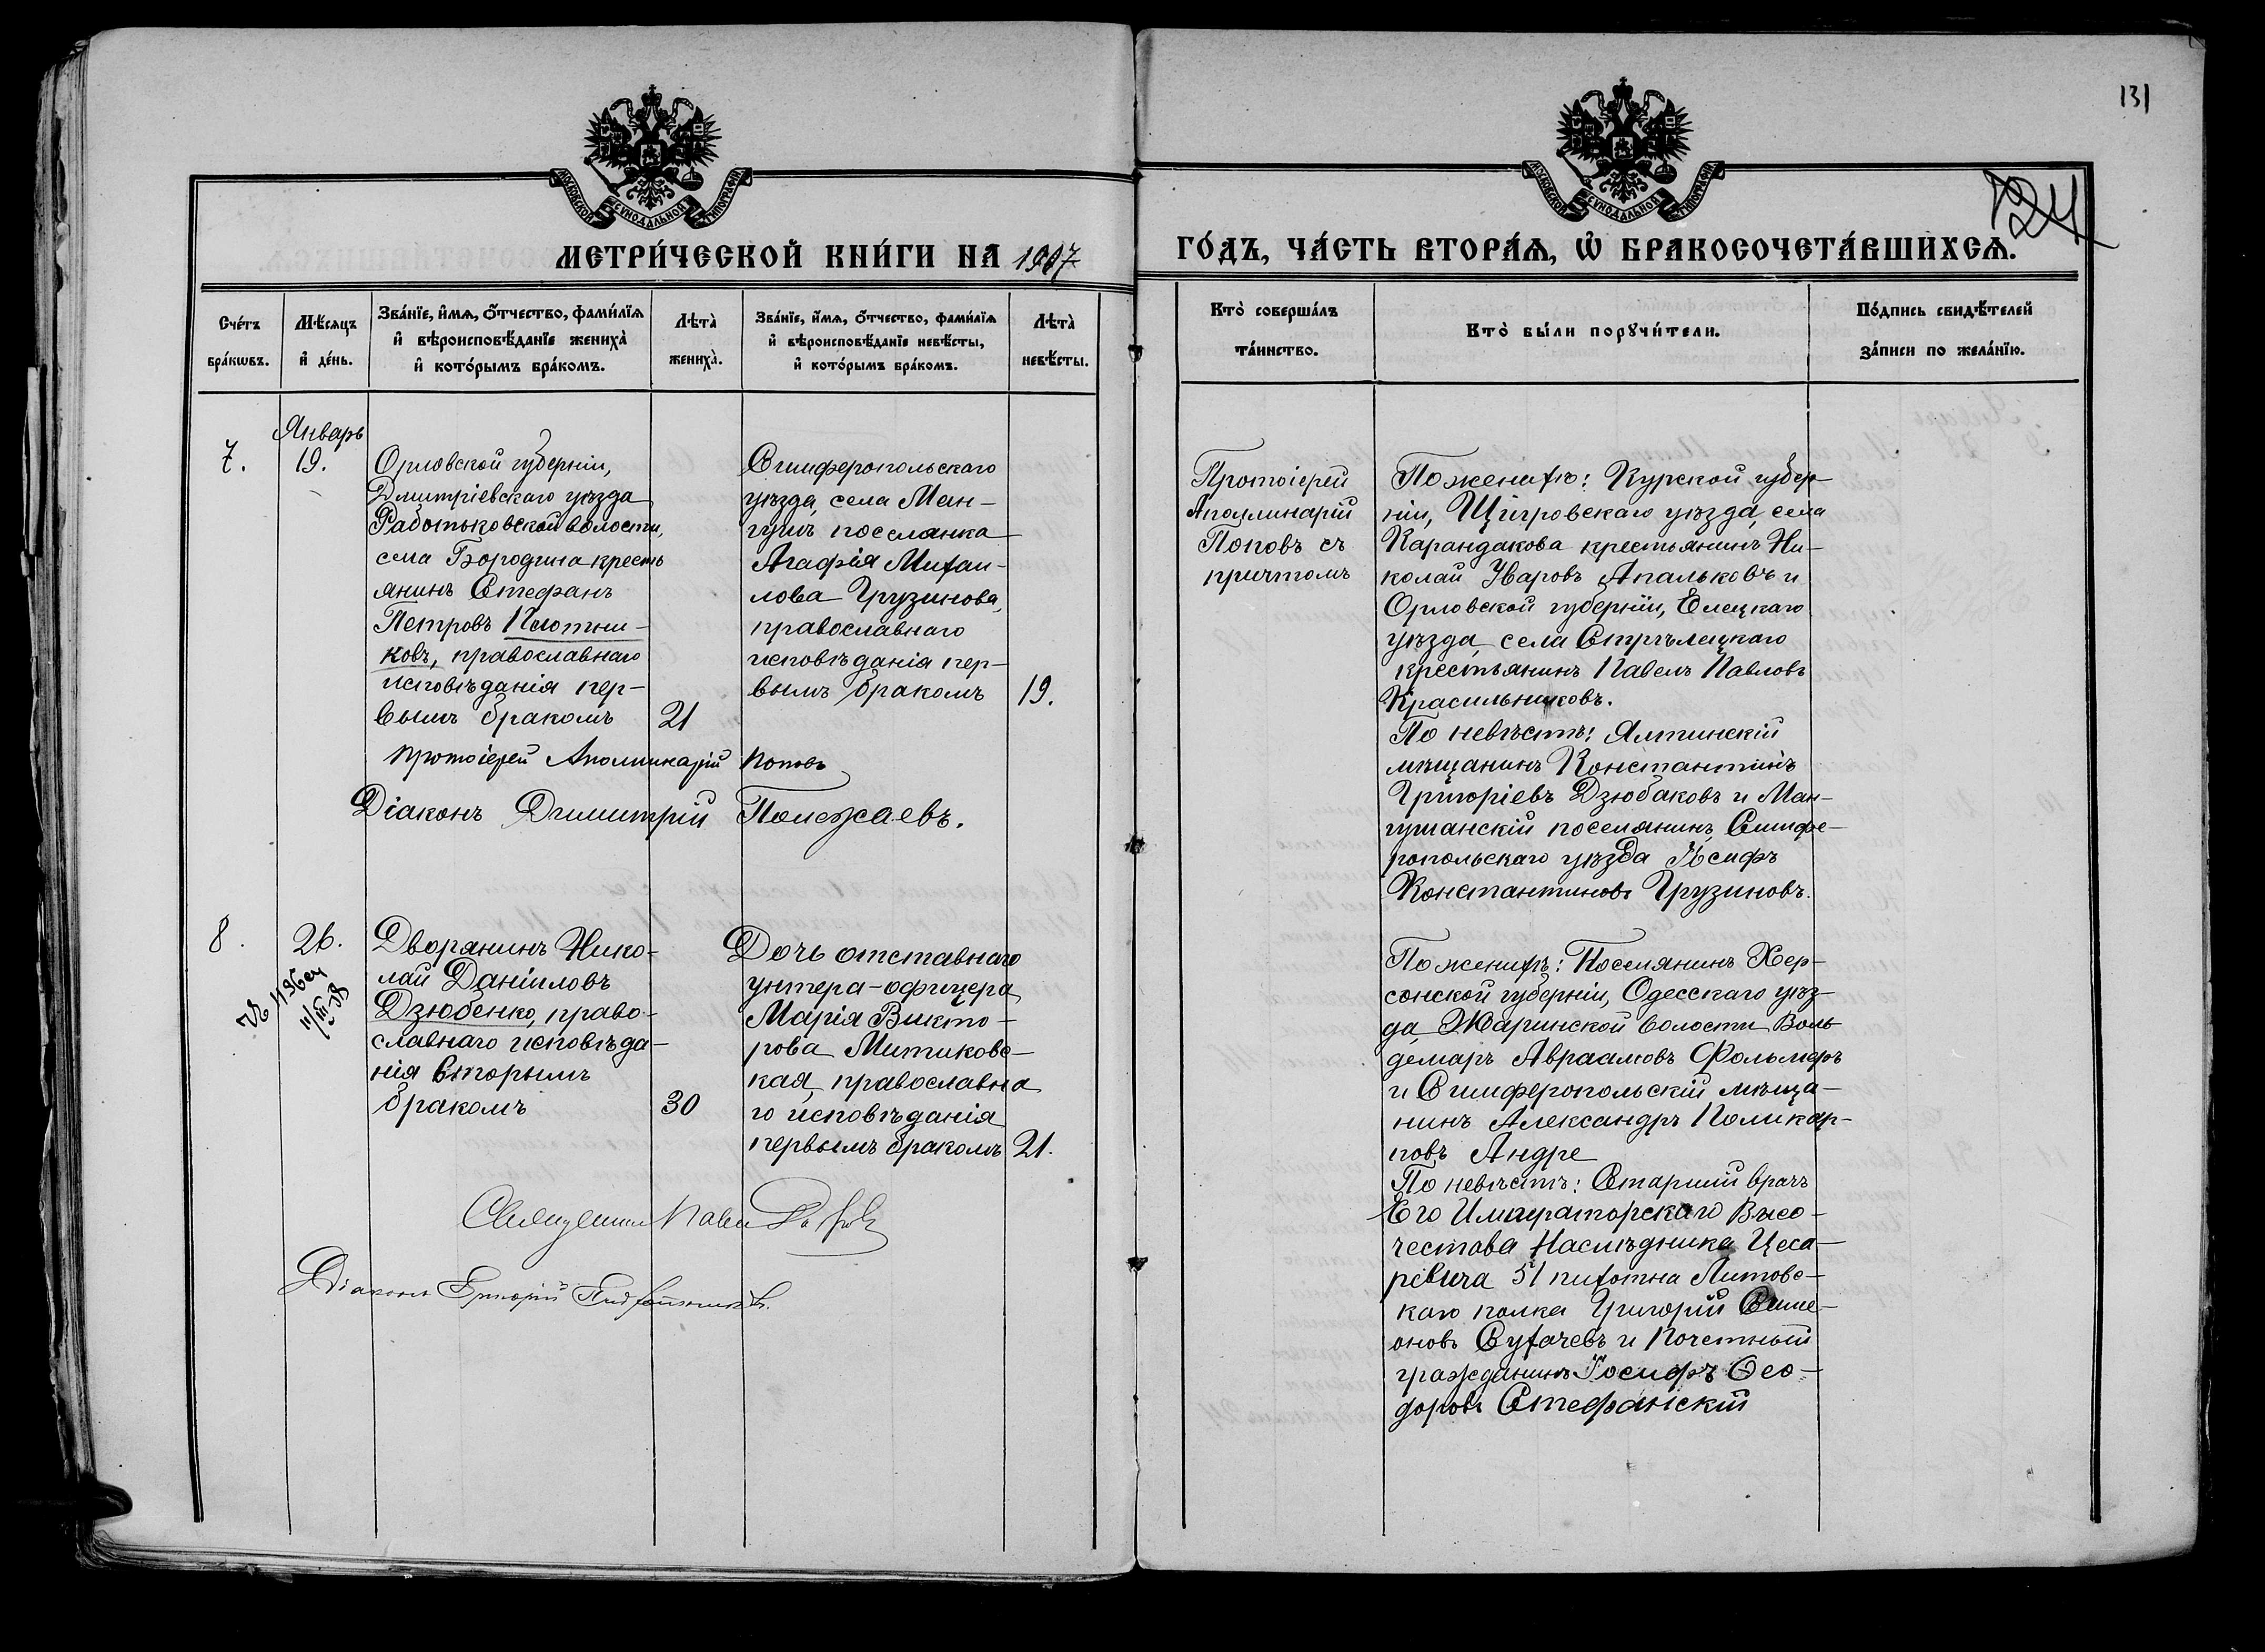 131
МОСКОВСКОЙ СѴНОДАЛЬНОЙ ТИПОГРАФІИ
МОСКОВСКОЙ СѴНОДАЛЬНОЙ ТИПОГРАФІИ
124
МЕТРИ́ЧЕСКОЙ КНИ́ГИ НА 1907
ГО́ДЪ, ЧА́СТЬ ВТОРА́Я, Ѡ БРАКОСОЧЕТА́ВШИХСЯ.
Сче́тъ
бра́кѡвъ.
Мѣ́сяцъ
и де́нь.
Зва́нїе, и́мя, ѻ́тчество, фами́лїя
и вѣроисповѣ́данїе жениха̀
и кото́рымъ бра́комъ.
Лѣта̀
жениха̀.
Зва́нїе, и́мя, ѻ́тчество, фами́лїя
и вѣроисповѣ́данїе невѣ́сты,
и кото́рымъ бра́комъ.
Лѣта̀
невѣ́сты.
Кто̀ соверша́лъ
та́инство.
Кто̀ бы́ли порꙋчи́тели.
По́дпись свидѣ́телей
за́писи по жела́нїю.
7.
Январь
19.
Орловской губерніи,
Дмитріевскаго уѣзда
Работьковской волости,
села Бородина кресть
янинъ Стефанъ
Петровъ Плотни-
ковъ, православнаго
исповѣданія пер-
вымъ бракомъ
21
Симферопольскаго
уѣзда, села Ман-
гушъ поселянка
Агафія Михаи-
лова Грузинова,
православнаго
исповѣданія пер-
вымъ бракомъ
19.
Протоіерей Аполлинарій Поповъ
Діаконъ Димитрій Полежаевъ.
Протоіерей
Аполлинарій
Поповъ съ
причтомъ
По женихѣ: Курской губер-
ніи, Щигровскаго уѣзда, села
Карандакова крестьянинъ Ни-
колай Уваровъ Апальковъ и
Орловской губерніи, Елецкаго
уѣзда села Стрѣлецкаго
крестьянинъ Павелъ Павловъ
Красильниковъ.
По невѣстѣ: Ялтинскій
мѣщанинъ Константинъ
Григоріевъ Дзюбаковъ и Ман-
гушанскій поселянинъ, Симфе-
ропольскаго уѣзда Іосифъ
Константиновъ Грузиновъ.
8.
26.
Дворянинъ Нико-
лай Даніиловъ
Дзюбенко, право-
славнаго исповѣда-
нія вторымъ
бракомъ
30
Дочь отставнаго
унтера-офицера
Марія Викто-
рова Митиковс-
кая, православна
го исповѣданія
первымъ бракомъ
21.
Священникъ
Діаконъ Григорій
По женихѣ: Поселянинъ Хер-
сонской губерніи, Одесскаго уѣз-
да, волости Воль
демаръ Авраамовъ Фольмеръ
и Симферопольскій мѣща-
нинъ Александръ Поликар-
повъ Андре
По невѣстѣ: Старшій врачъ
Его Императорскаго Высо-
чества Наслѣдника Цеса-
ревича 51 пихотна Литовс-
каго полка Григорій Симе-
оновъ Сухачевъ и Почетный
гражданинъ Іосифъ Ѳео-
доровъ Стефанскій